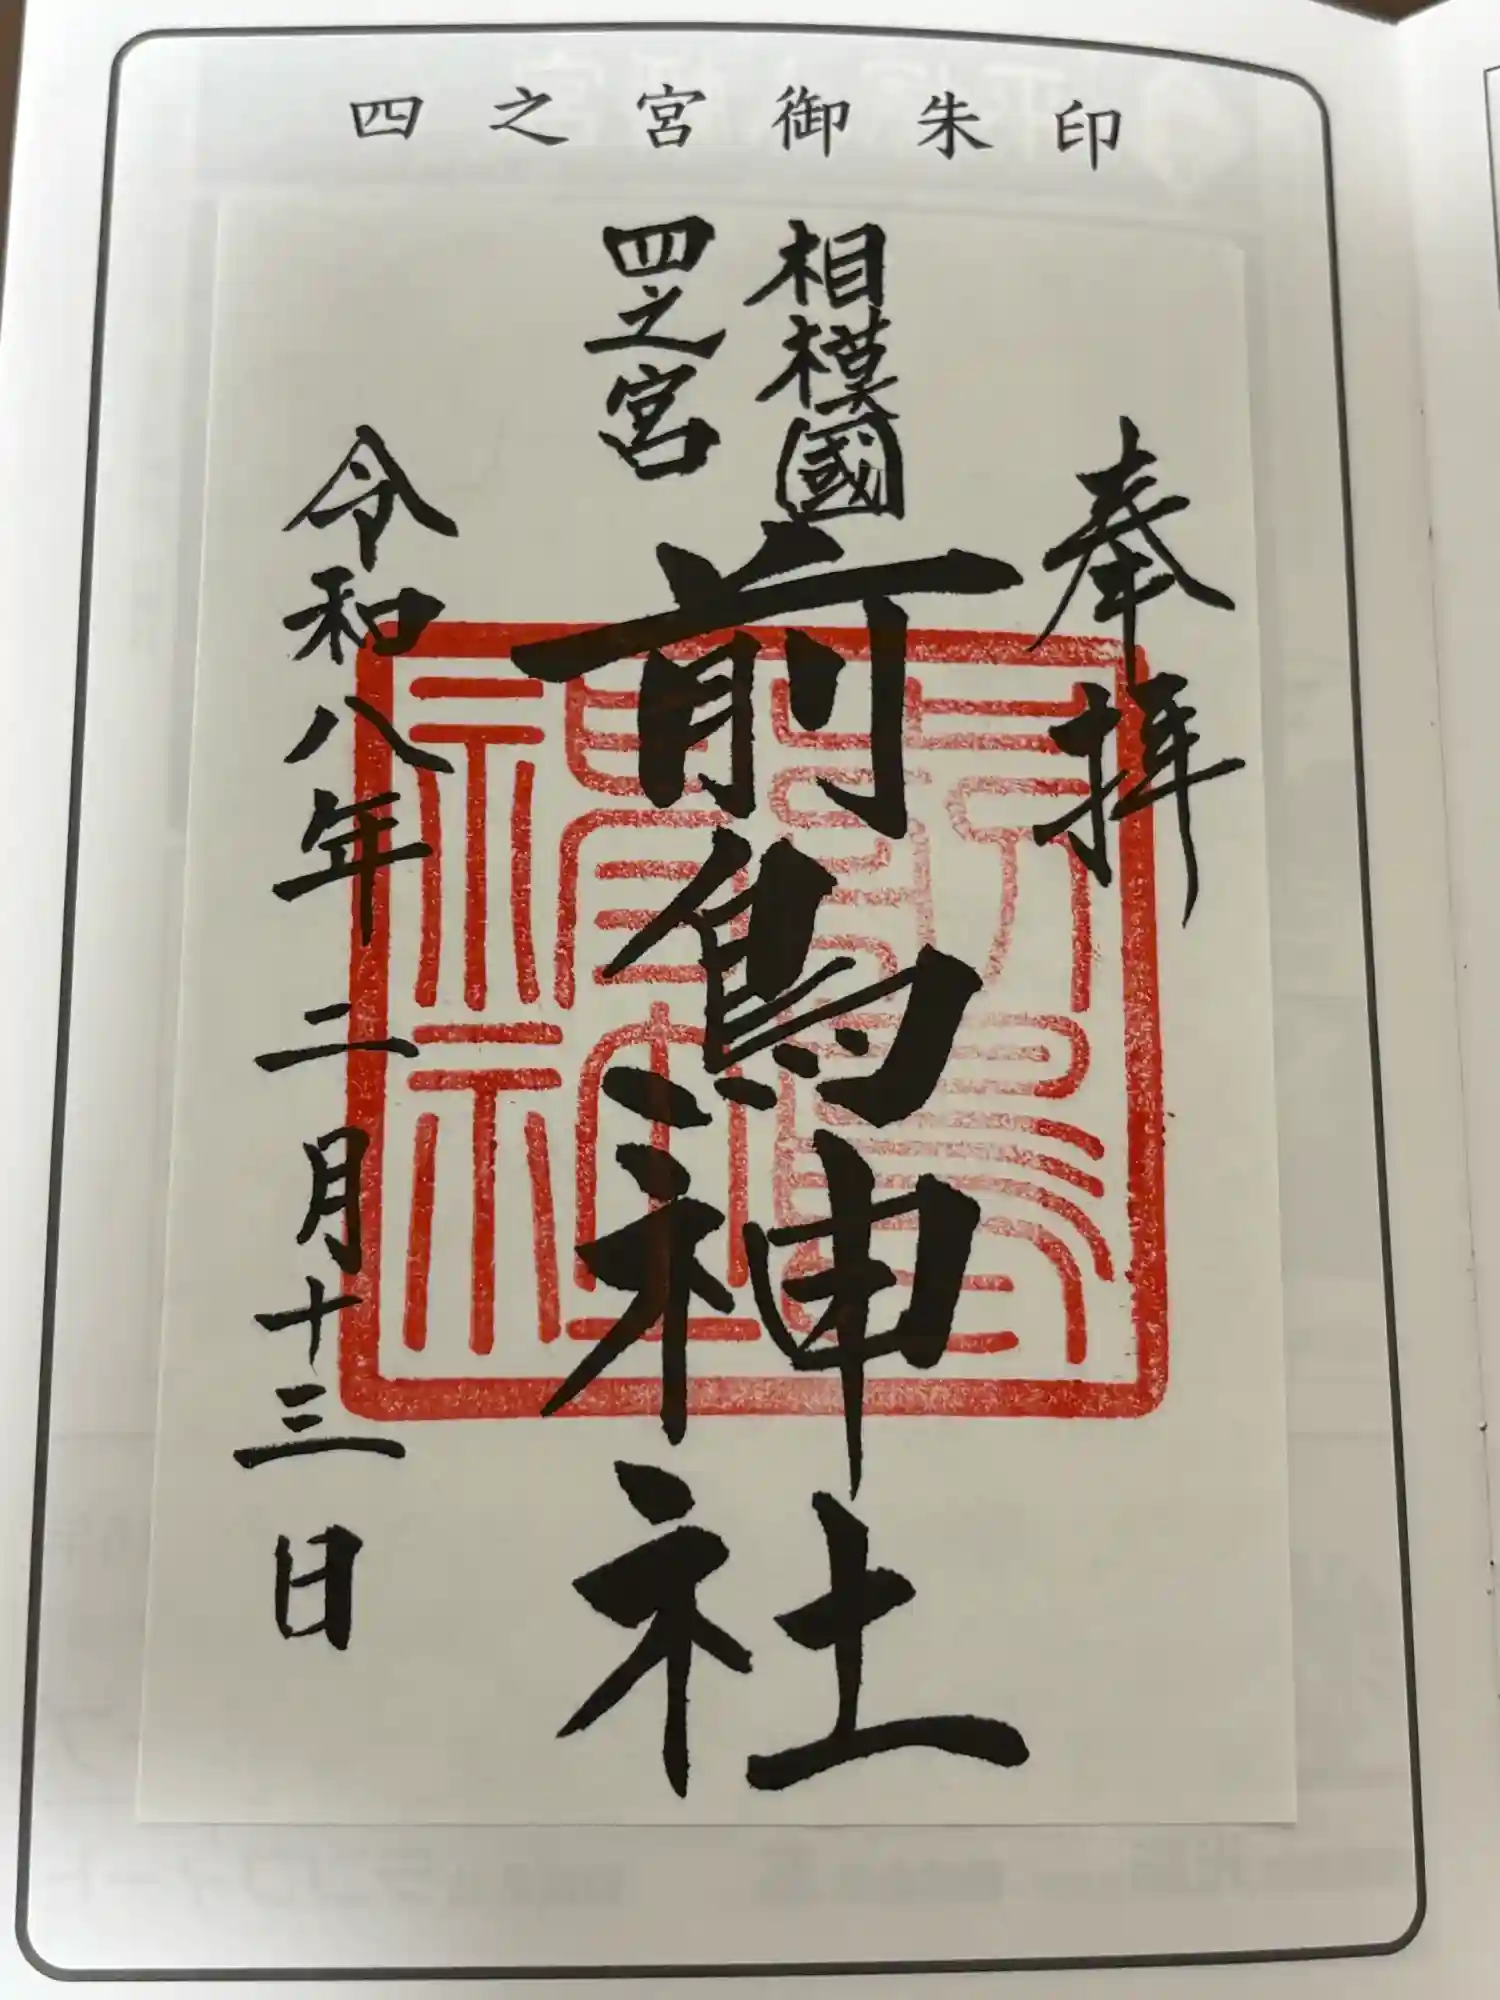 四之宮御朱印
奉拝
相模國
四之宮
前鳥神社
令和八年二月十三日